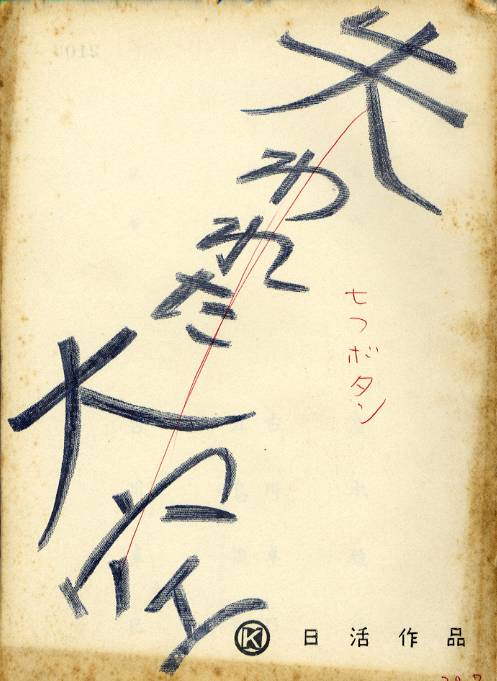 失われた大空
七つボタン
日活作品